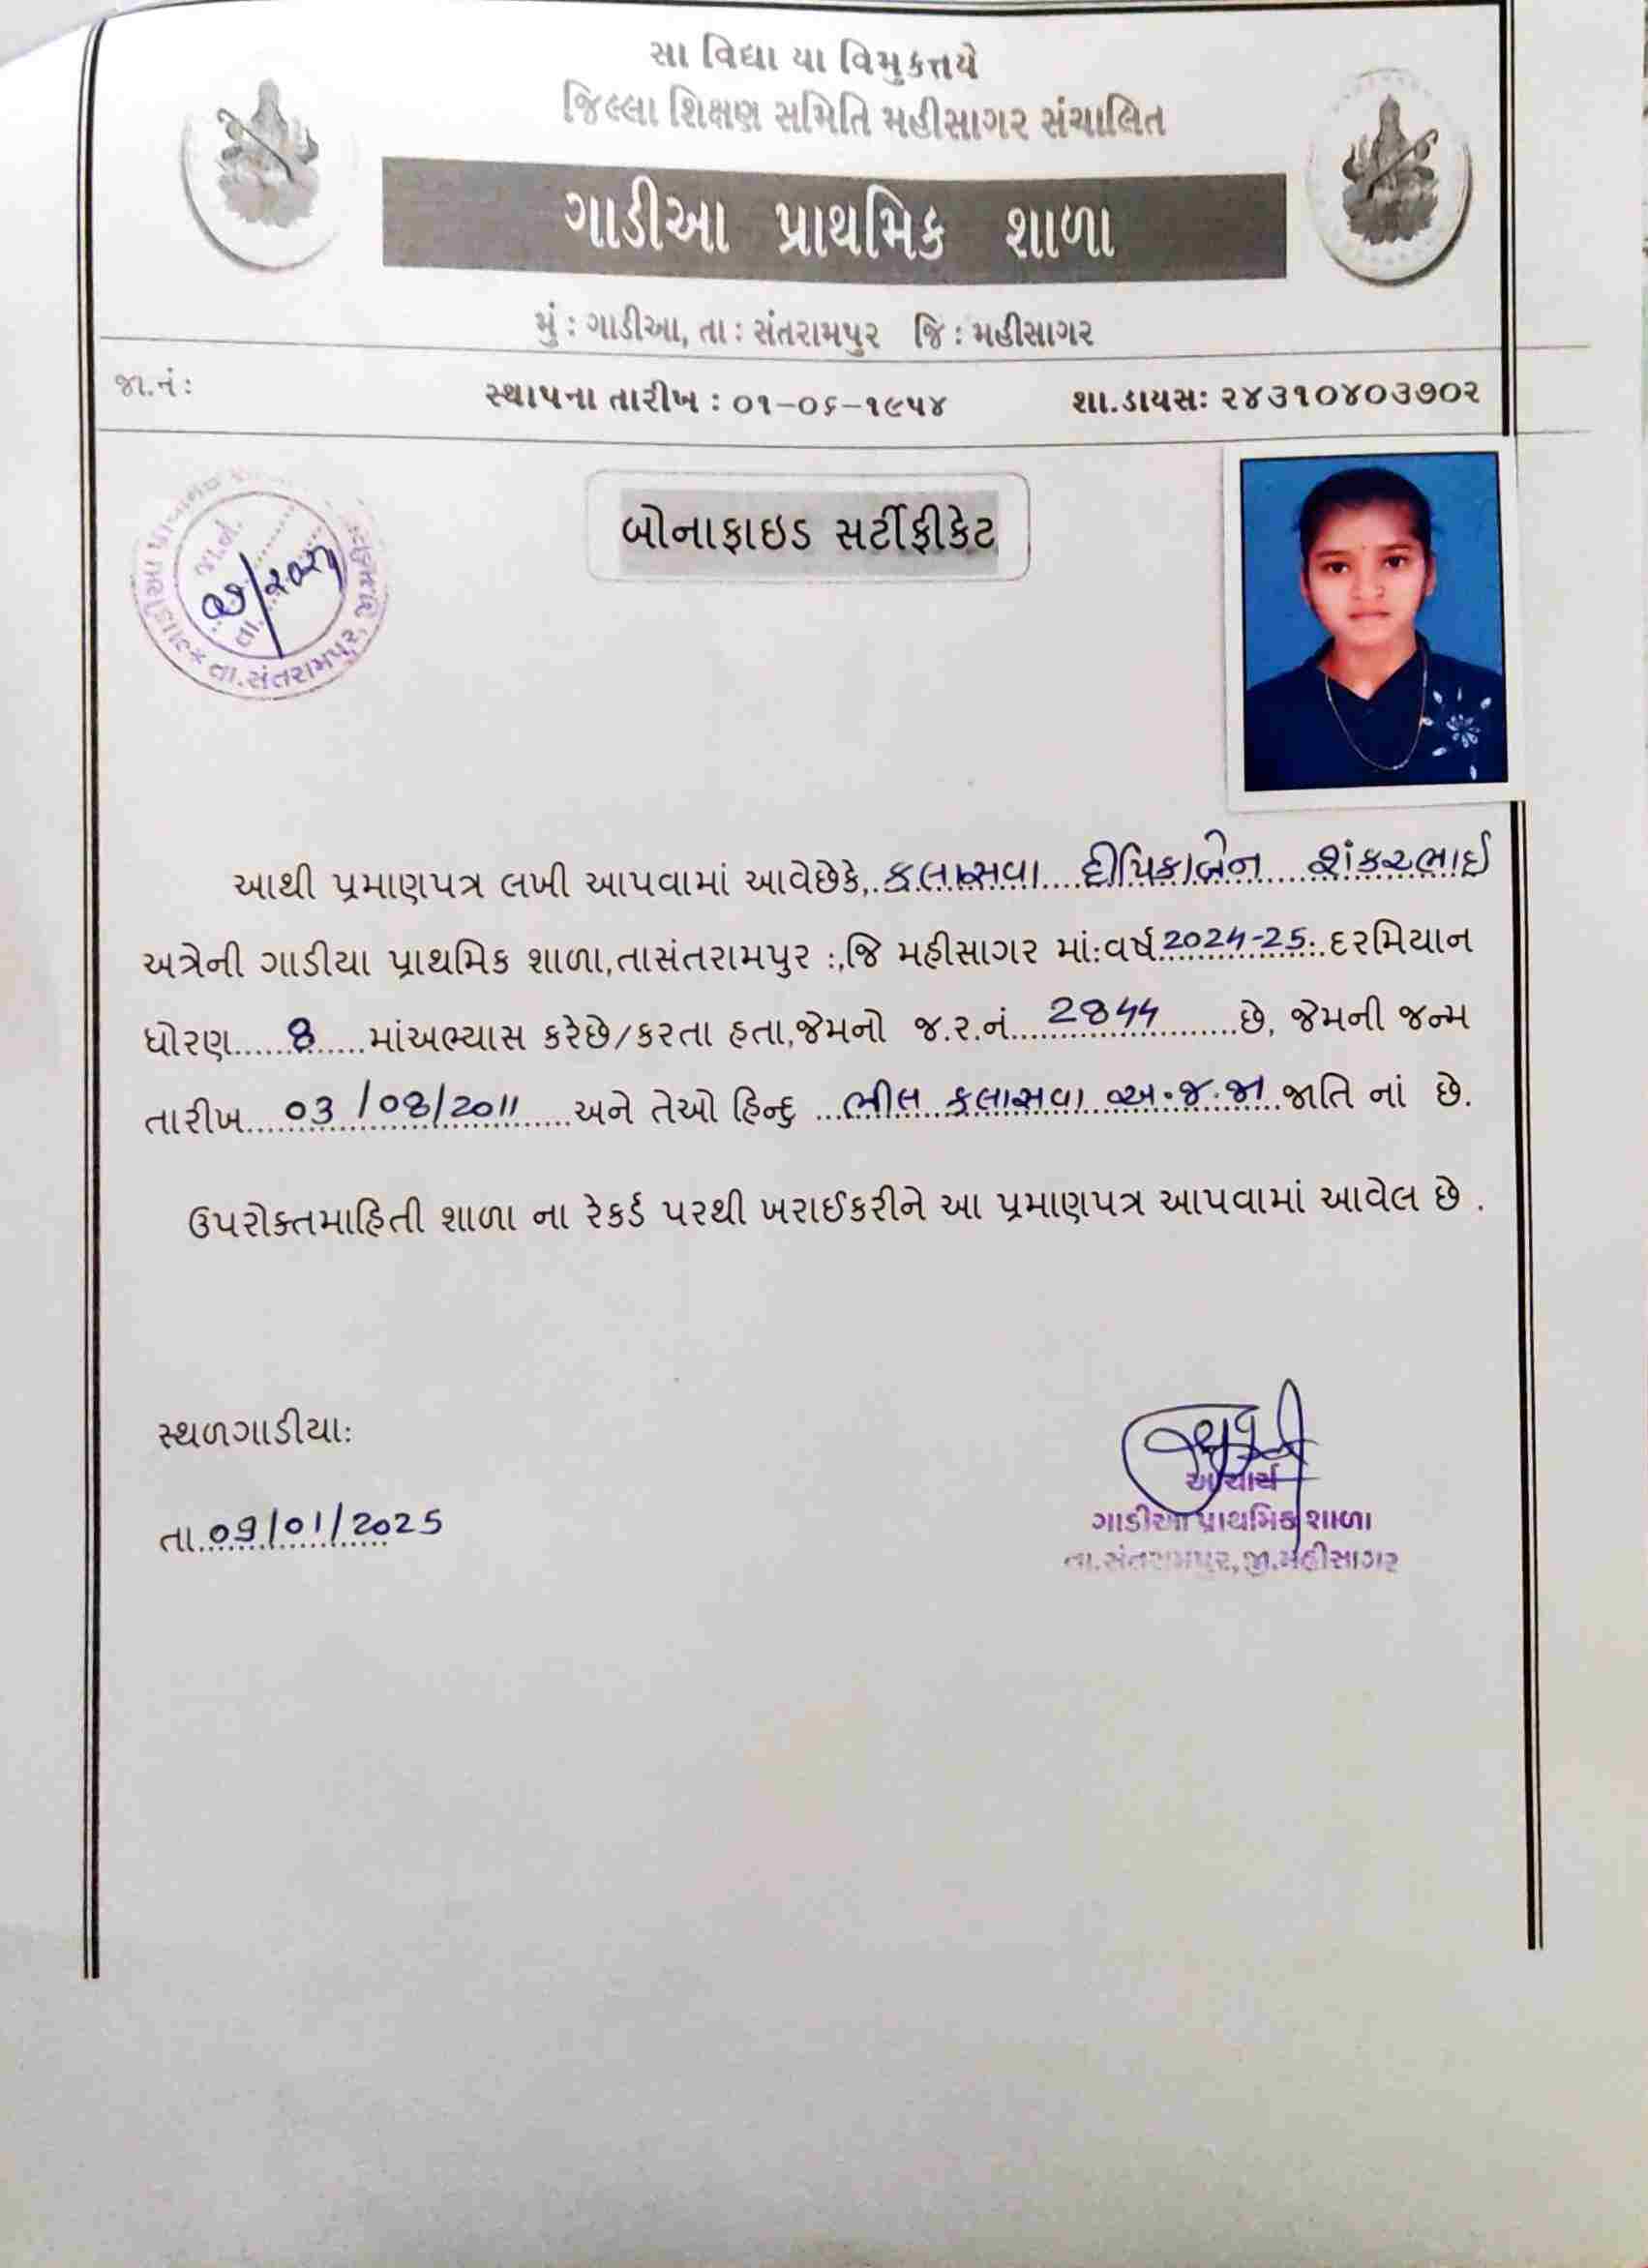 સા વિદ્યા યા વિમુકત્તયે
જિલ્લા શિક્ષણ સમિતિ મહીસાગર સંચાલિત
ગાડીઆ પ્રાથમિક શાળા
મું : ગાડીઆ, તા : સંતરામપુર જિ : મહીસાગર
જા.નં :
સ્થાપના તારીખ : ૦૧-૦૬-૧૯૫૪
શા.ડાયસઃ ૨૪૩૧૦૪૦૩૭૦૨
જા.નં.
તા.
તા.સંતરામપુર
બોનાફાઇડ સર્ટીફીકેટ
આથી પ્રમાણપત્ર લખી આપવામાં આવેછેકે, કલાસવા દીપિકાબેન શંકરભાઈ
અત્રેની ગાડીયા પ્રાથમિક શાળા,તાસંતરામપુર :,જિ મહીસાગર માં:વર્ષ 2024-25 દરમિયાન
ધોરણ 8 માંઅભ્યાસ કરેછે/કરતા હતા,જેમનો જ.ર.નં છે, જેમની જન્મ
તારીખ 03/08/2011 અને તેઓ હિન્દુ ભીલ કલાસવા અ.જ.જા જાતિ નાં છે.
ઉપરોક્તમાહિતી શાળા ના રેકર્ડ પરથી ખરાઈકરીને આ પ્રમાણપત્ર આપવામાં આવેલ છે .
સ્થળગાડીયાઃ
તા. 09/01/2025
આચાર્ય
ગાડીઆ પ્રાથમિક શાળા
તા.સંતરામપુર,જી.મહીસાગર